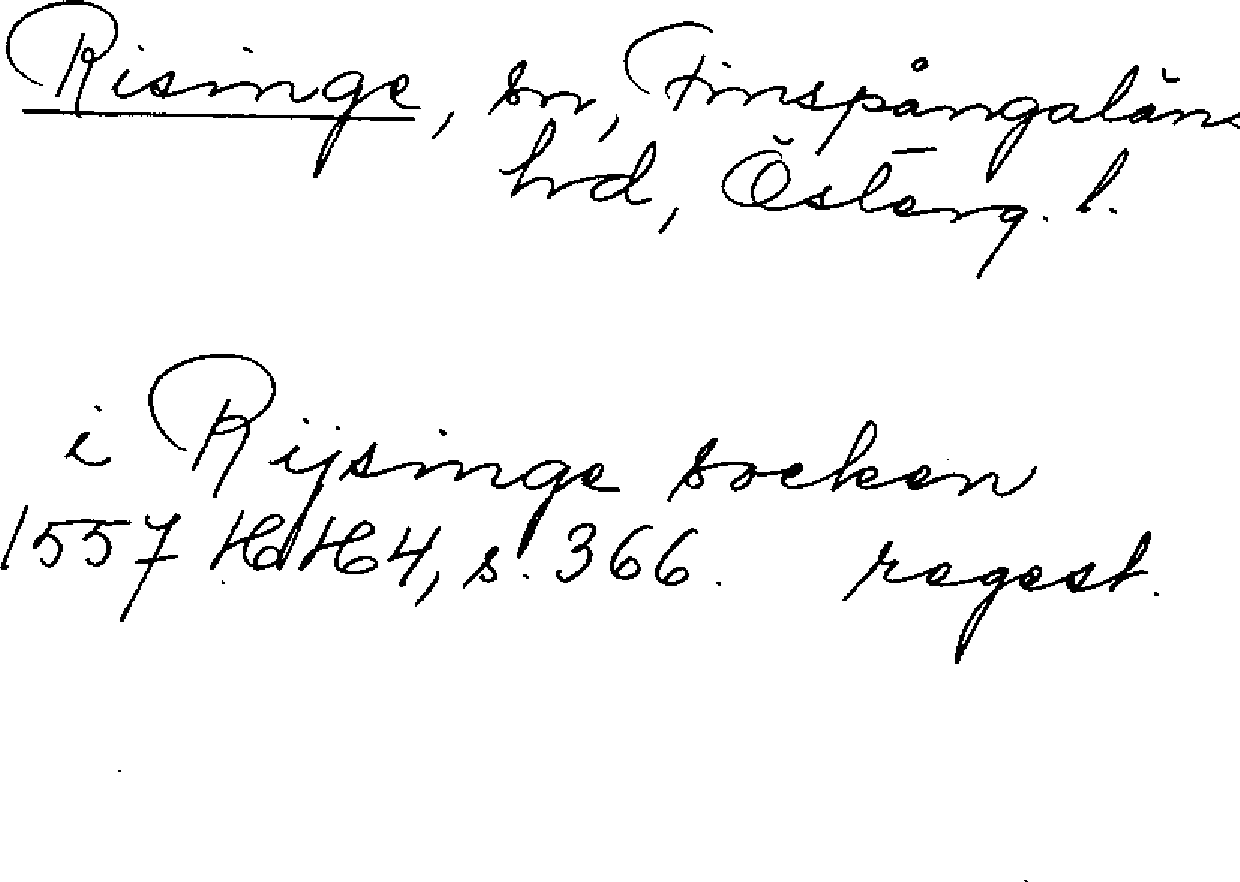 Risinge, sn, Finspångaläns
hrd, Österg. l.
i Rijsinge socken
1557 HdH4, s. 366. regest.